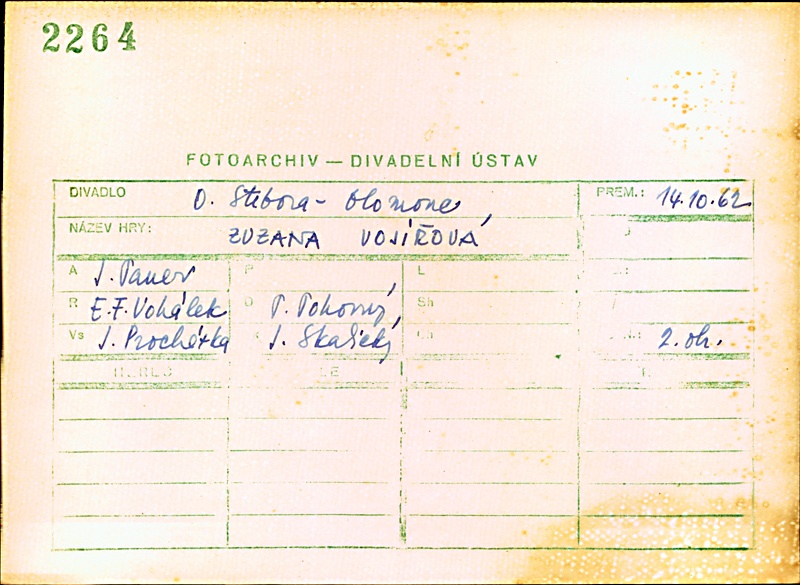 2264
FOTOARCHIV — DIVADELNÍ ÚSTAV
DIVADLO O. Stibora - Olomouc PREM.: 14.10.62
NÁZEV HRY: ZUZANA VOJÍŘOVÁ
A J. Pauer P L
R E.F. Vohálek P. Pokorný Sh
Vs J. Procházka J. Skalický 2. oh.
HEREC